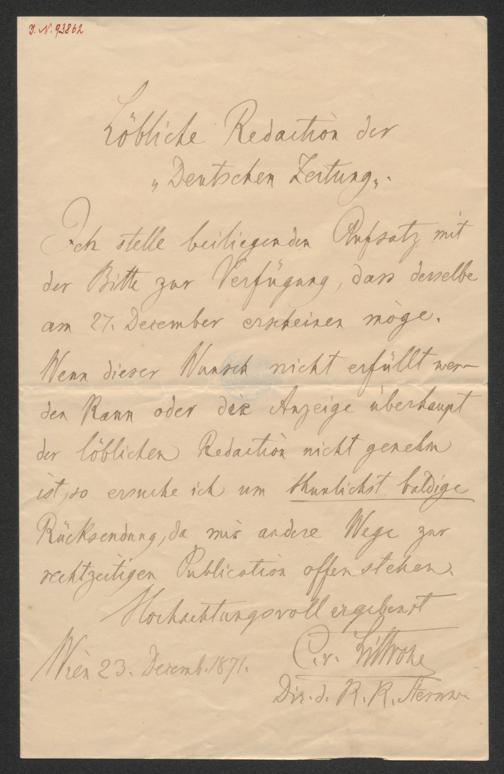 J. N. 93862
Löbliche Redaction der
„Deutschen Zeitung„.
Ich stelle beiliegenden Aufsatz mit
der Bitte zur Verfügung, dass derselbe
am 27. December erscheinen möge.
Wenn dieser Wunsch nicht erfüllt wer-
den kann oder die Anzeige überhaupt
der löblichen Redaction nicht genehm
ist, so ersuche ich um thunlichst baldige
Rücksendung, da mir andere Wege zur
rechtzeitigen Publication offen stehen.
Hochachtungsvoll ergebenst
C. v. Littrow
Wien 23. Decemb. 1871.
Dir. d. K. K. Sternw.